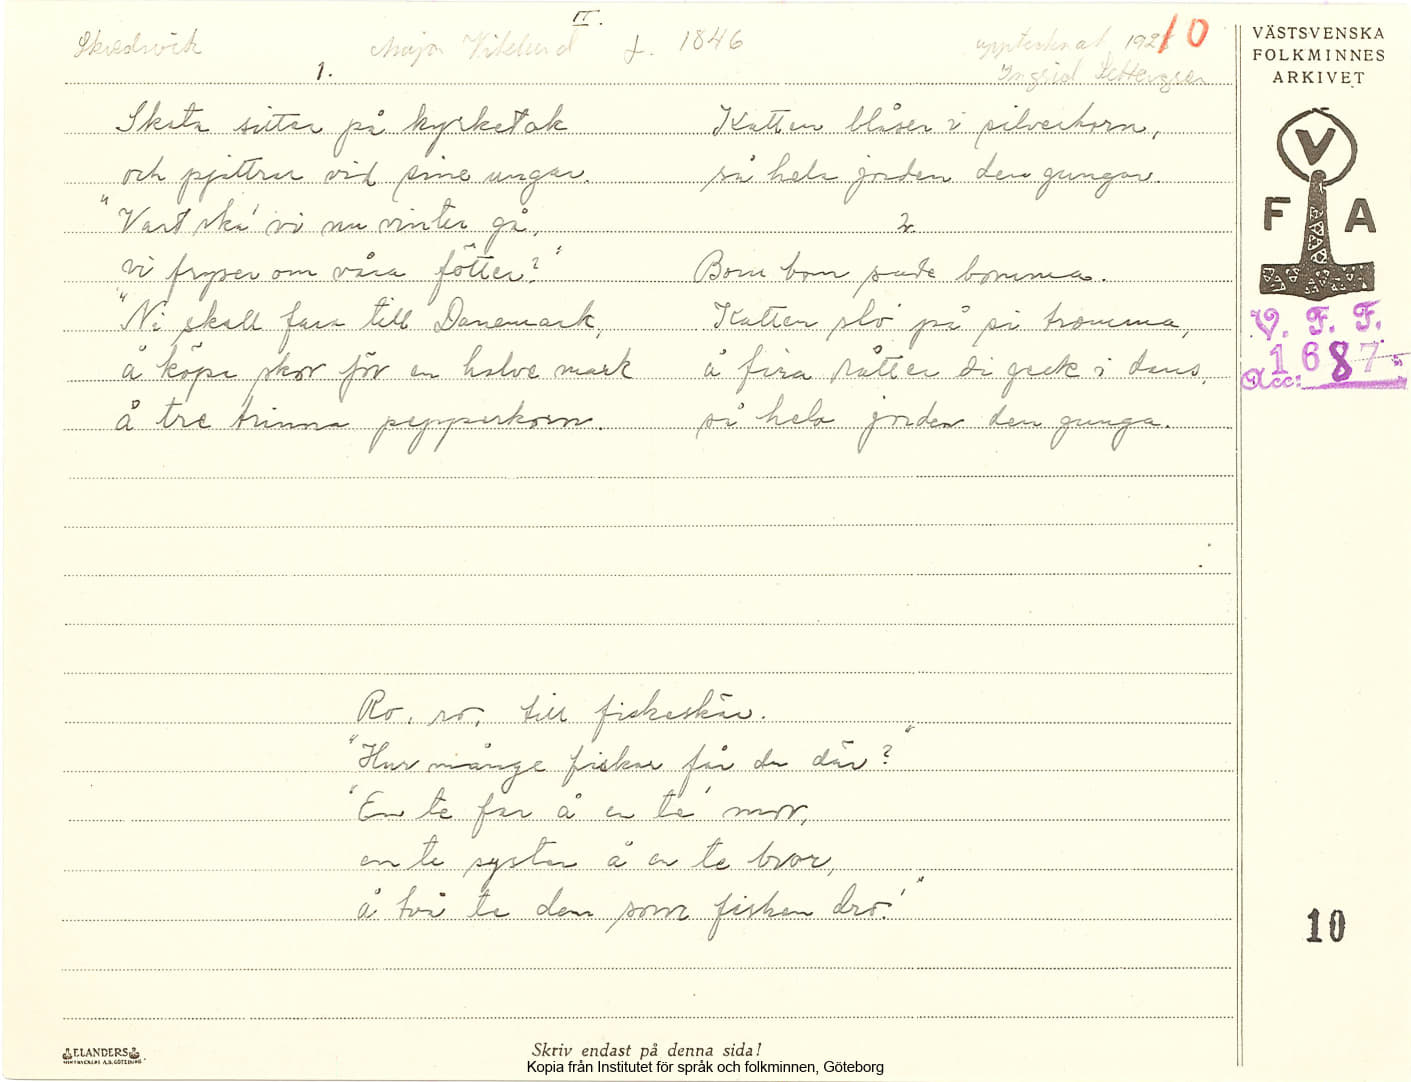 II.
Skredsvik Maja Viklund f. 1846 upptecknat 192 10
Ingrid Pettersson
1.
Skata sitter på kyrketak
och pjattrar vid sine ungar.
"Vart ska' vi nu vinter gå,
vi fryser om våra fötter?"
"Ni skall fara till Danemark,
å köpa skor för en halve mark
å tre trinna pepparkorn.
Katten blåser i silverhorn,
så hela jorden den gungar.
2.
Bom bom sade bomma.
Katten slo på si tromma,
å fira råtter di geck i dans,
så hela jorden den gunga.
Ro, ro, till fiskeskär.
"Hur många fiskar får du där?"
"En te far å en te' mor,
en te syster å en te bror,
å två te den som fisken dro!"
VÄSTSVENSKA
FOLKMINNES
ARKIVET
V
F A
V. F. F.
Acc: 1687
10
ELANDERS
Skriv endast på denna sida!
Kopia från Institutet för språk och folkminnen, Göteborg